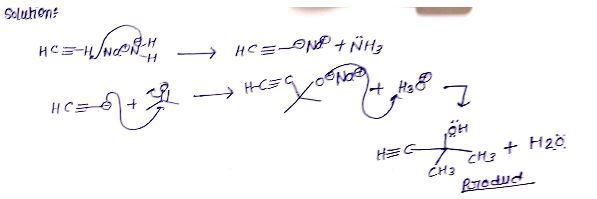 Solution:
HC≡-H, Na⊕N⊖-H H → HC≡-⊖Na⊕ + N̈H3
HC≡-⊖ + O → H-C≡C O⊖Na⊕ + H3O⊕
ÖH
H≡C CH3 + H2Ö
CH3
Product